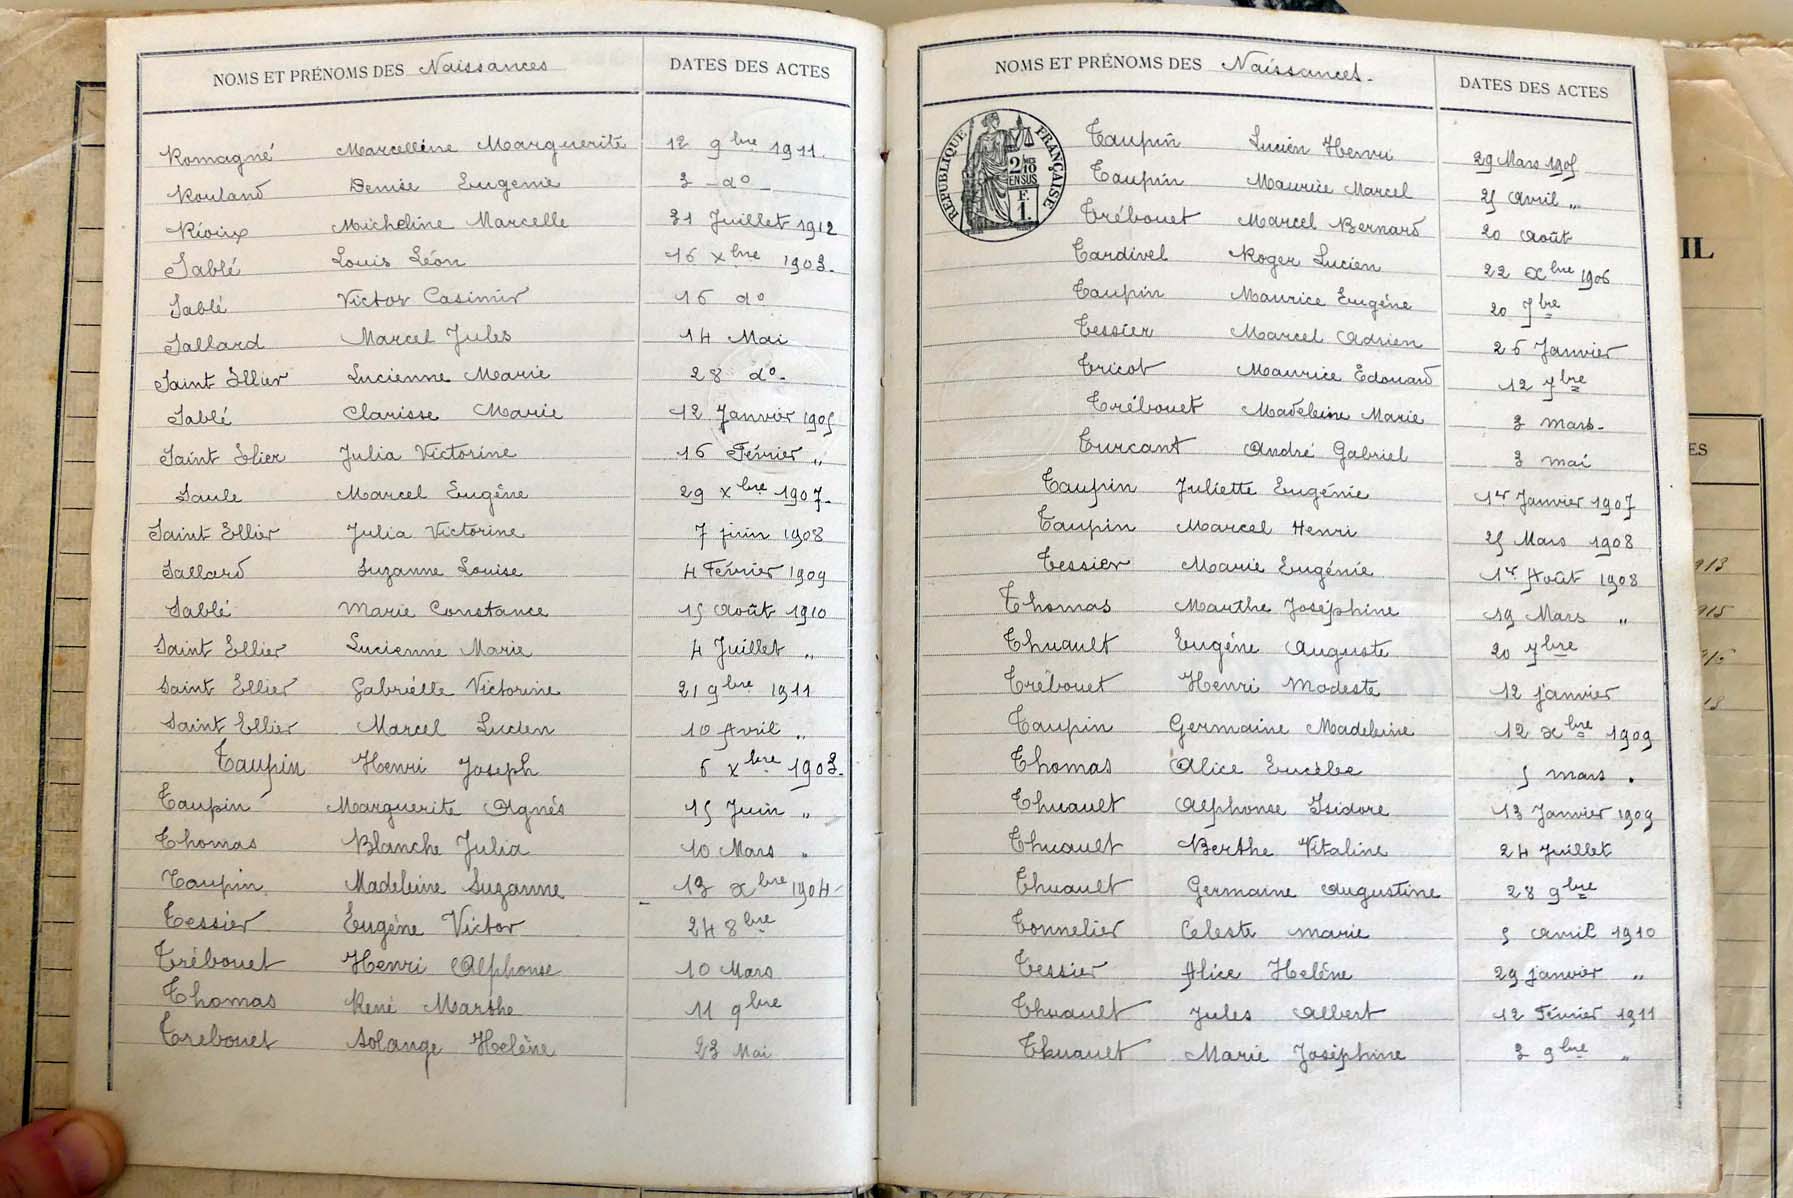 NOMS ET PRÉNOMS DES Naissances DATES DES ACTES
Romagné Marcelline Marguerite 12 9bre 1911.
Rouland Denise Eugenie 3 - do -
Rioux Micheline Marcelle 31 Juillet 1912
Sablé Louis Léon 16 xbre 1903.
Sablé Victor Casimir 16 do
Sallard Marcel Jules 14 Mai
Saint Ellier Lucienne Marie 28 do.
Sablé Clarisse Marie 12 Janvier 1905
Saint Elier Julia Victorine 16 Février "
Saule Marcel Eugène 29 xbre 1907.
Saint Ellier Julia Victorine 7 juin 1908
Sallard Suzanne Louise 4 Février 1909
Sablé Marie Constance 15 Août 1910
Saint Ellier Lucienne Marie 4 Juillet "
Saint Ellier Gabriélle Victorine 21 9bre 1911
Saint Ellier Marcel Lucien 10 Avril "
Taupin Henri Joseph 6 xbre 1903.
Taupin Marguerite Agnés 15 Juin "
Thomas Blanche Julia 10 Mars "
Taupin Madeleine Suzanne 13 xbre 1904
Tessier Eugène Victor 24 8bre
Trébouet Henri Alphonse 10 Mars
Thomas René Marthe 11 9bre
Trebouet Solange Helène 23 Mai
NOMS ET PRÉNOMS DES Naissances. DATES DES ACTES
RÉPUBLIQUE FRANÇAISE
2/10 EN SUS
F. 1.
Taupin Lucien Henri 29 Mars 1905
Taupin Maurice Marcel 25 Avril "
Trébouet Marcel Bernard 20 Août
Tardivel Roger Lucien 22 xbre 1906
Taupin Maurice Eugène 20 7bre
Tessier Marcel Adrien 26 Janvier
Tricot Maurice Edouard 12 7bre
Trébouet Madeleine Marie 3 mars.
Turcant André Gabriel 3 mai
Taupin Juliette Eugénie 1er Janvier 1907
Taupin Marcel Henri 25 Mars 1908
Tessier Marie Eugénie 1er Août 1908
Thomas Marthe Joséphine 19 Mars "
Thuault Eugéne Auguste 20 7bre
Trébouet Henri Modeste 12 janvier
Taupin Germaine Madeleine 12 xbre 1909
Thomas Alice 5 mars .
Thuault Alphonse Isidore 13 Janvier 1909
Thuault Berthe Vitaline 24 Juillet
Thuault Germaine Augustine 28 9bre
Tonnelier Celeste marie 5 Avril 1910
Tessier Alice Helène 29 janvier "
Thuault Jules Albert 12 Février 1911
Thuault Marie Joséphine 3 9bre "
IL
ES